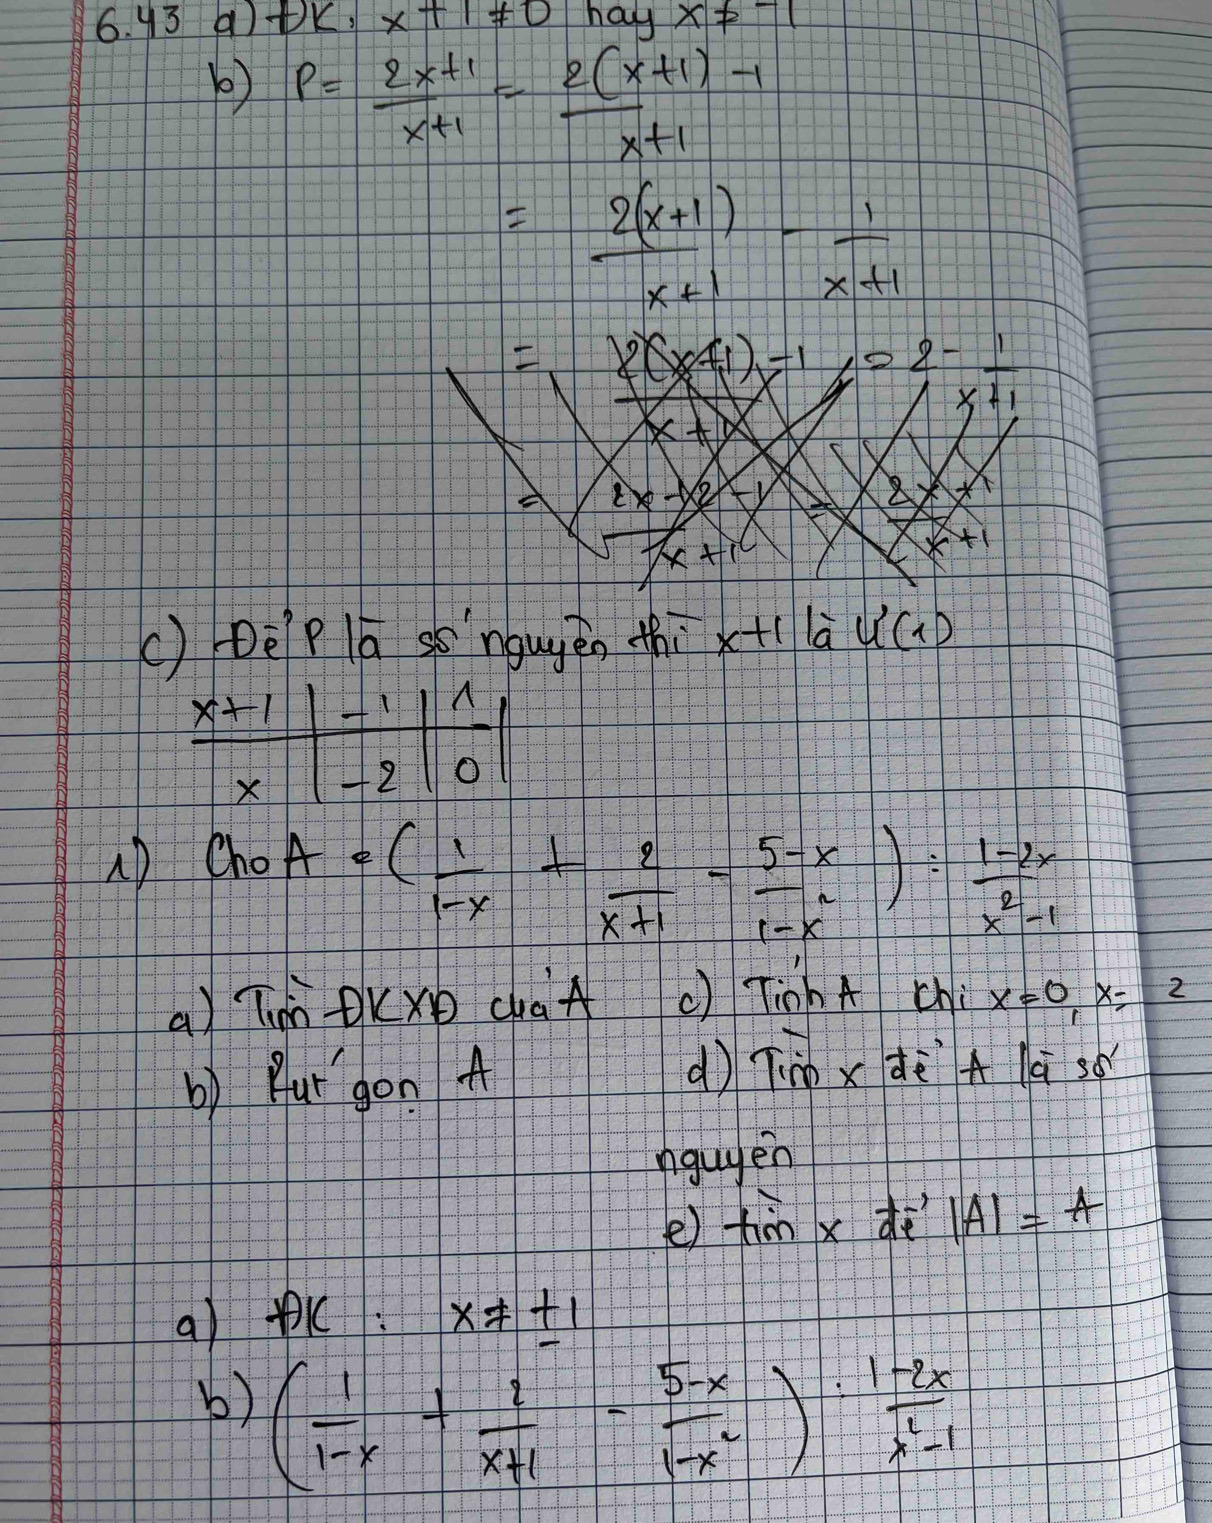 6.43 a) ĐK: x+1 ≠ 0 hay x ≠ -1
b) P = (2x+1)/(x+1) = (2(x+1) - 1)/(x+1)
= 2(x+1)/(x+1) - 1/(x+1)
= (2(x+1) - 1)/(x+1) = 2 - 1/(x+1)
= (2x+2-1)/(x+1) = (2x+1)/(x+1)
c) Để P là số nguyên thì x+1 là Ư(1)
x+1 | -1 | 1
x | -2 | 0
1) Cho A = (1/(1-x) + 2/(x+1) - (5-x)/(1-x²)) : (1-2x)/(x²-1)
a) Tìm ĐKXĐ của A
b) Rút gọn A
c) Tính A khi x=0, x= 2
d) Tìm x để A là số
nguyên
e) tìm x để |A| = A
a) ĐK : x ≠ ±1
b) (1/(1-x) + 2/(x+1) - (5-x)/(1-x²)) : (1-2x)/(x²-1)